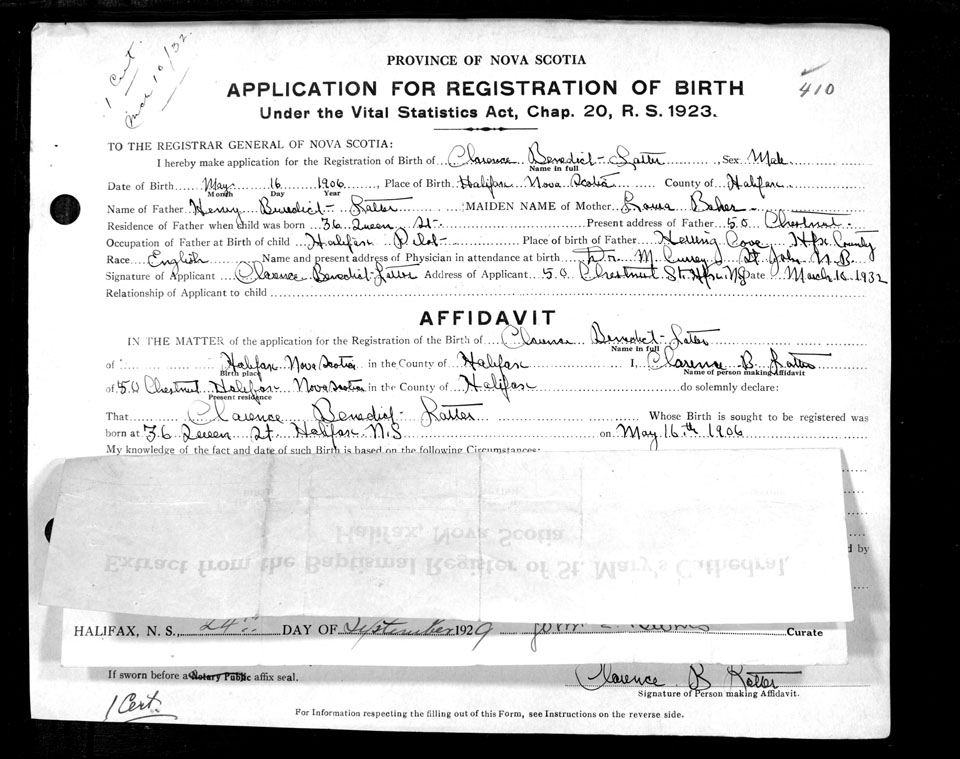 1 Cert.
Mar 10/32.
410
PROVINCE OF NOVA SCOTIA
APPLICATION FOR REGISTRATION OF BIRTH
Under the Vital Statistics Act, Chap. 20, R. S. 1923.
TO THE REGISTRAR GENERAL OF NOVA SCOTIA:
I hereby make application for the Registration of Birth of Clarence Benedict Latter Sex Male
Name in full
Date of Birth May 16 1906, Place of Birth Halifax Nova Scotia County of Halifax
Month Day Year
Name of Father Henry Benedict Latter MAIDEN NAME of Mother Baker
Residence of Father when child was born 36 Queen St. Present address of Father 50 Chestnut
Occupation of Father at Birth of child Halifax Pilot Place of birth of Father Herring Cove Hfx County
Race English Name and present address of Physician in attendance at birth Dr. M. St John N.B.
Signature of Applicant Clarence Benedict Latter Address of Applicant 50 Chestnut St Hfx NS Date March 16 1932
Relationship of Applicant to child
AFFIDAVIT
IN THE MATTER of the application for the Registration of the Birth of Clarence Benedict Latter
Name in full
of Halifax Nova Scotia in the County of Halifax I, Clarence B Latter
Birth place Name of person making Affidavit
of 50 Chestnut Halifax Nova Scotia in the County of Halifax do solemnly declare:
Present residence
That Clarence Benedict Latter Whose Birth is sought to be registered was
born at 36 Queen St. Halifax N.S on May 16th 1906
My knowledge of the fact and date of such Birth is based on the following Circumstances:
d by
Halifax, Nova Scotia
Extract from the Baptismal Register of St. Mary's Cathedral,
HALIFAX, N. S., 24th DAY OF September 1929 Curate
If sworn before a Notary Public affix seal.
Clarence B Latter
Signature of Person making Affidavit.
1 Cert.
For Information respecting the filling out of this Form, see Instructions on the reverse side.